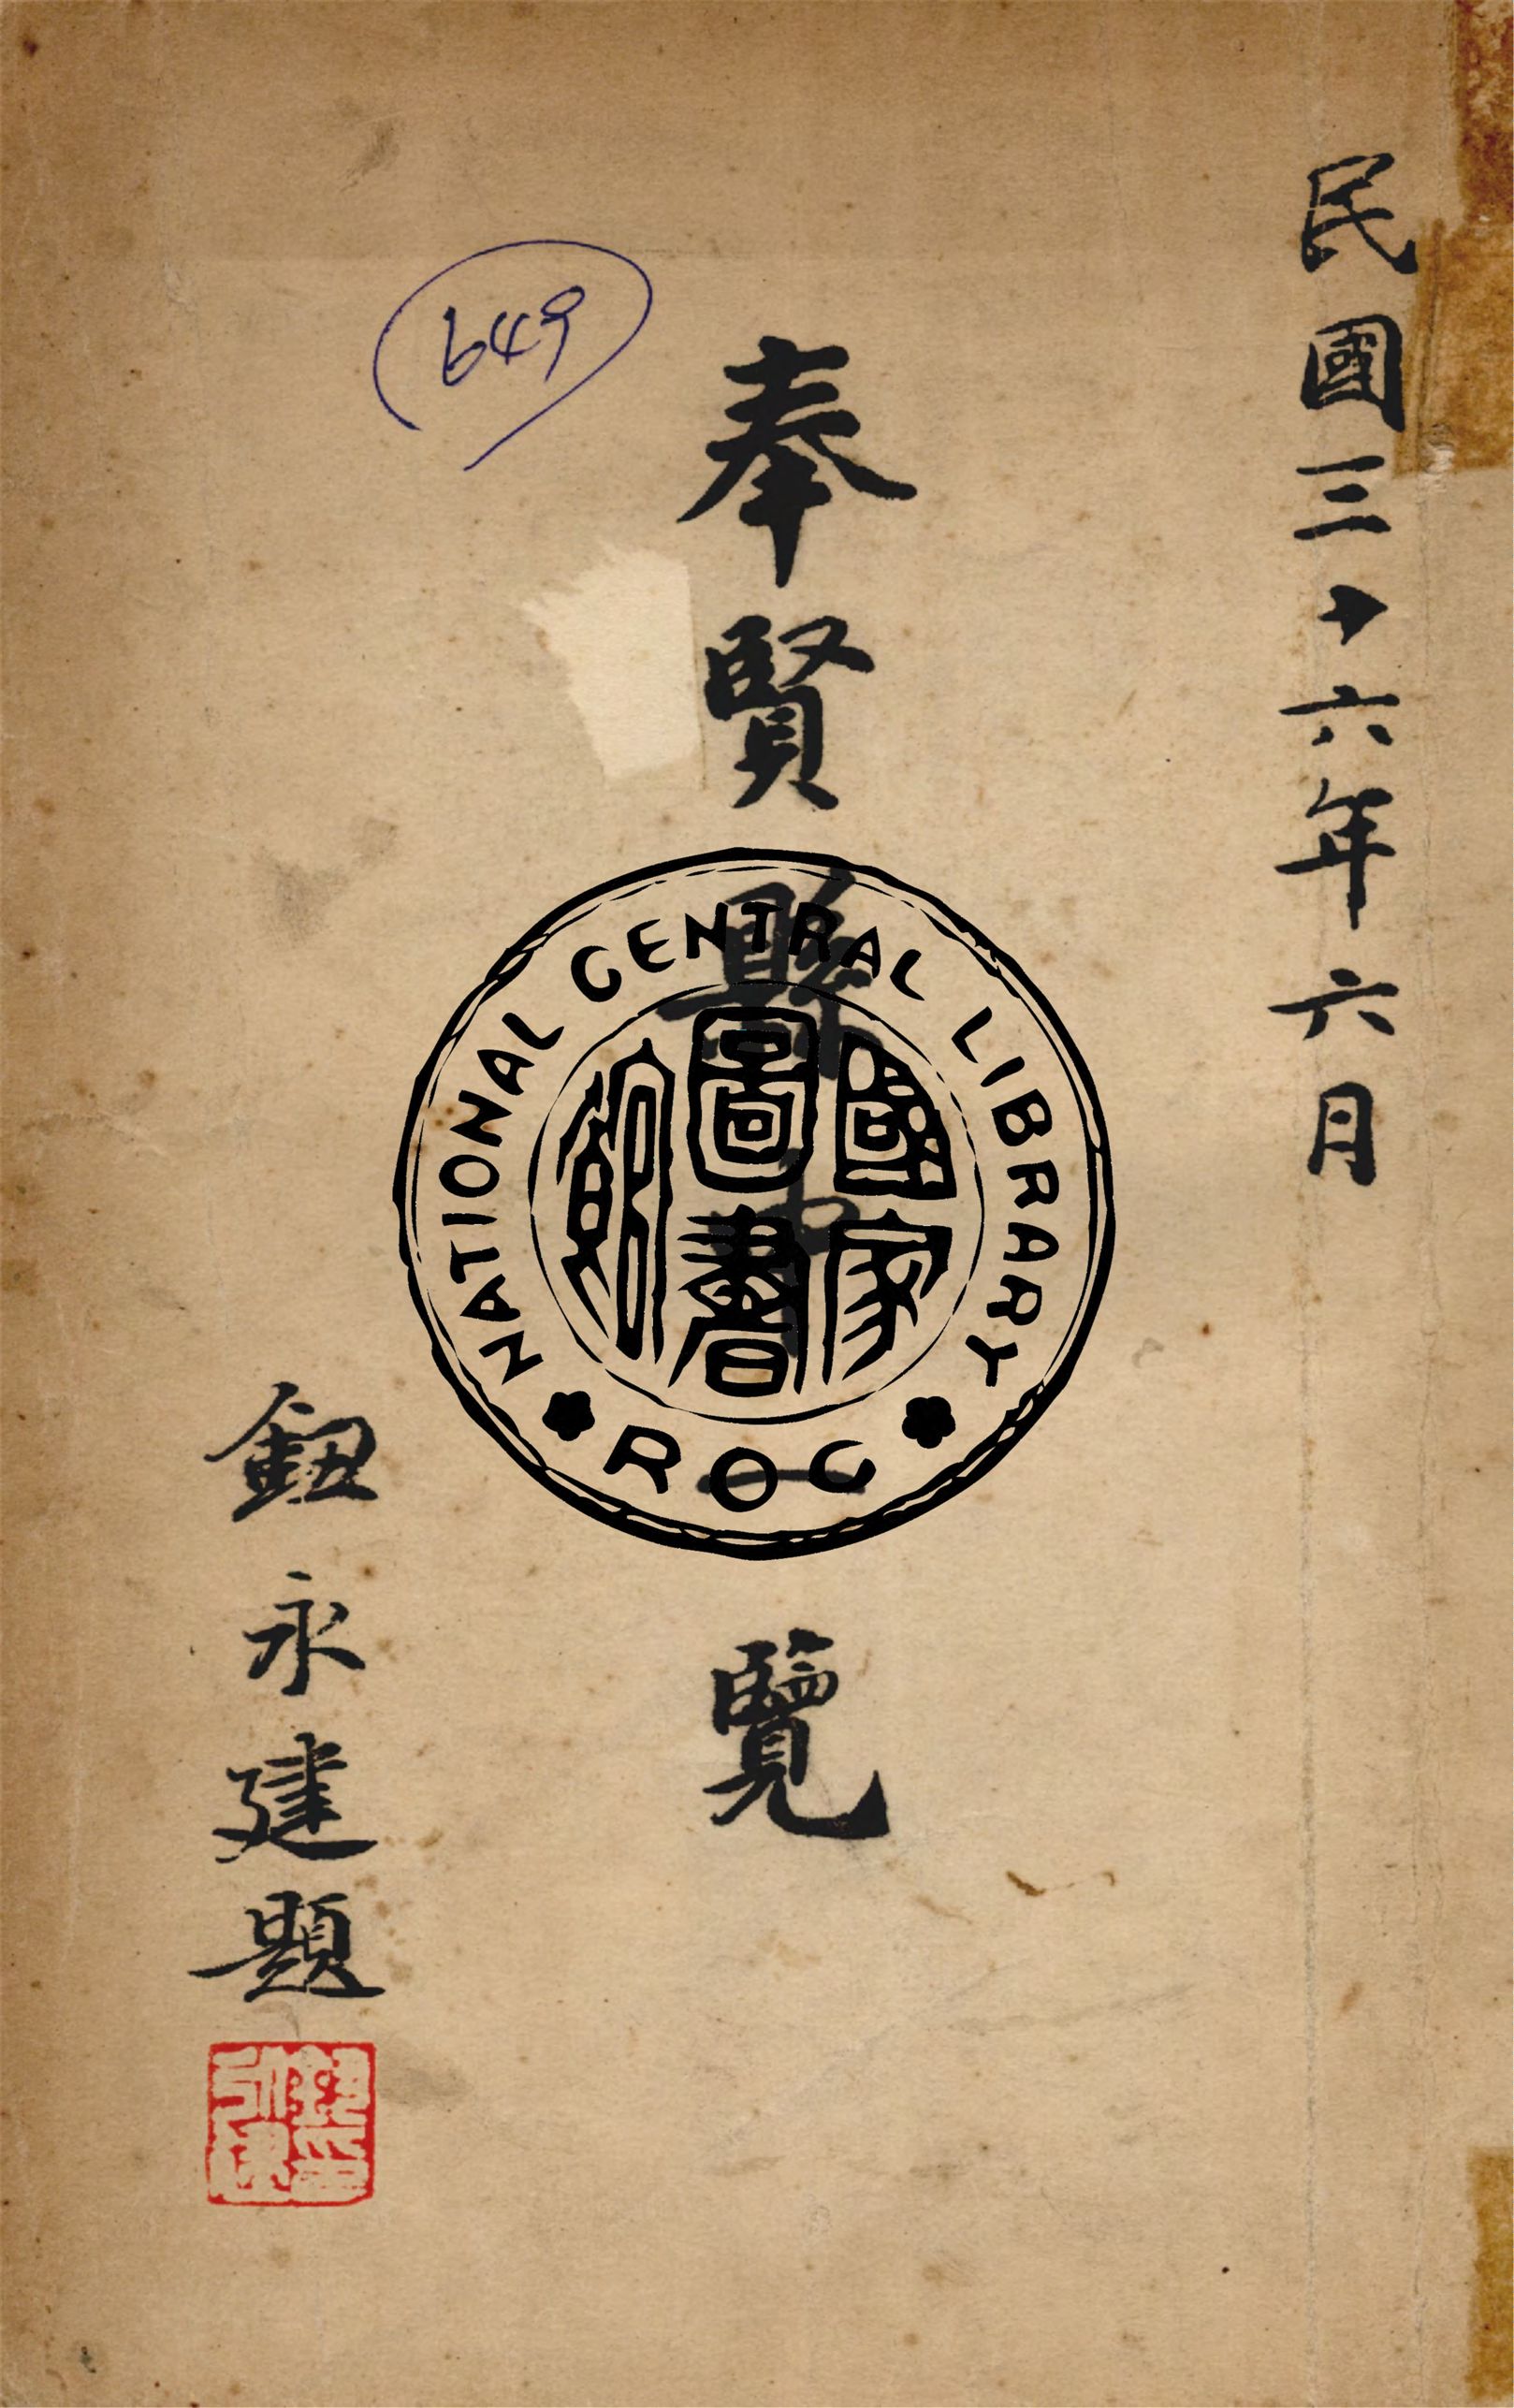 民國三十六年六月
奉賢縣中一覽
鈕永建題
649
NATIONAL CENTRAL LIBRARY
ROC
國家
圖書
館